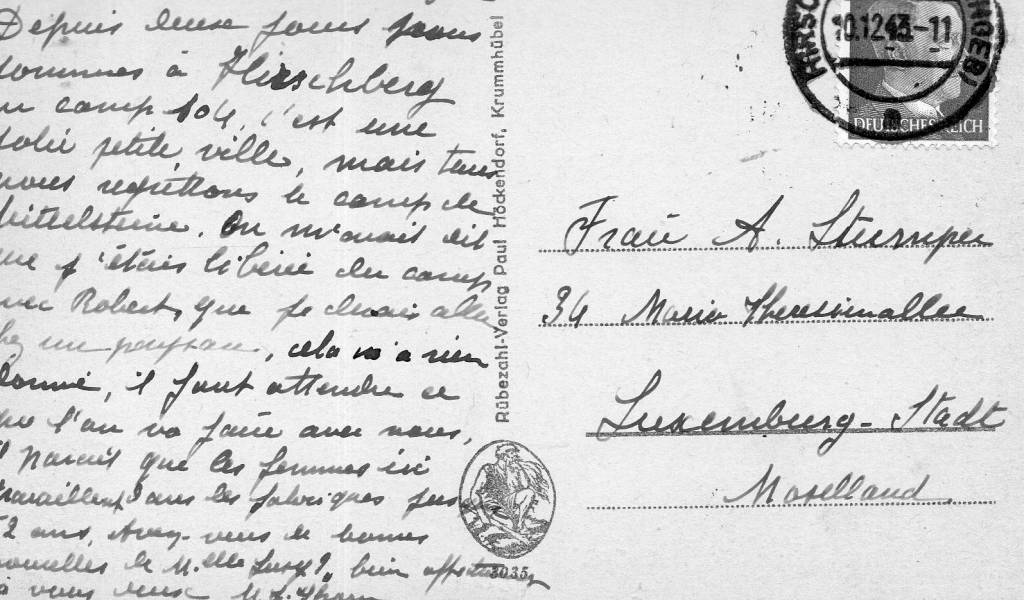 Depuis deux jours nous
sommes à Hirschberg
au camp 104, c'est une
jolie petite ville, mais tous
nous regrettons le camp de
Mittelsteine. On m'avait dit
que j'étais libérée du camp
avec Robert, que je devais aller
chez un paysan, cela n'a rien
donné, il faut attendre ce
que l'on va faire avec nous,
Il paraît que les femmes ici
travaillent dans les fabriques
ans, Avez-vous de bonnes
nouvelles de M.elle bien
à vous deux
Rübezahl-Verlag Paul Höckendorf, Krummhübel
3035
10.12.43-11
DEUTSCHES REICH
Frau A. Stumper
34 Maria Theresienallee
Luxemburg-Stadt
Moselland